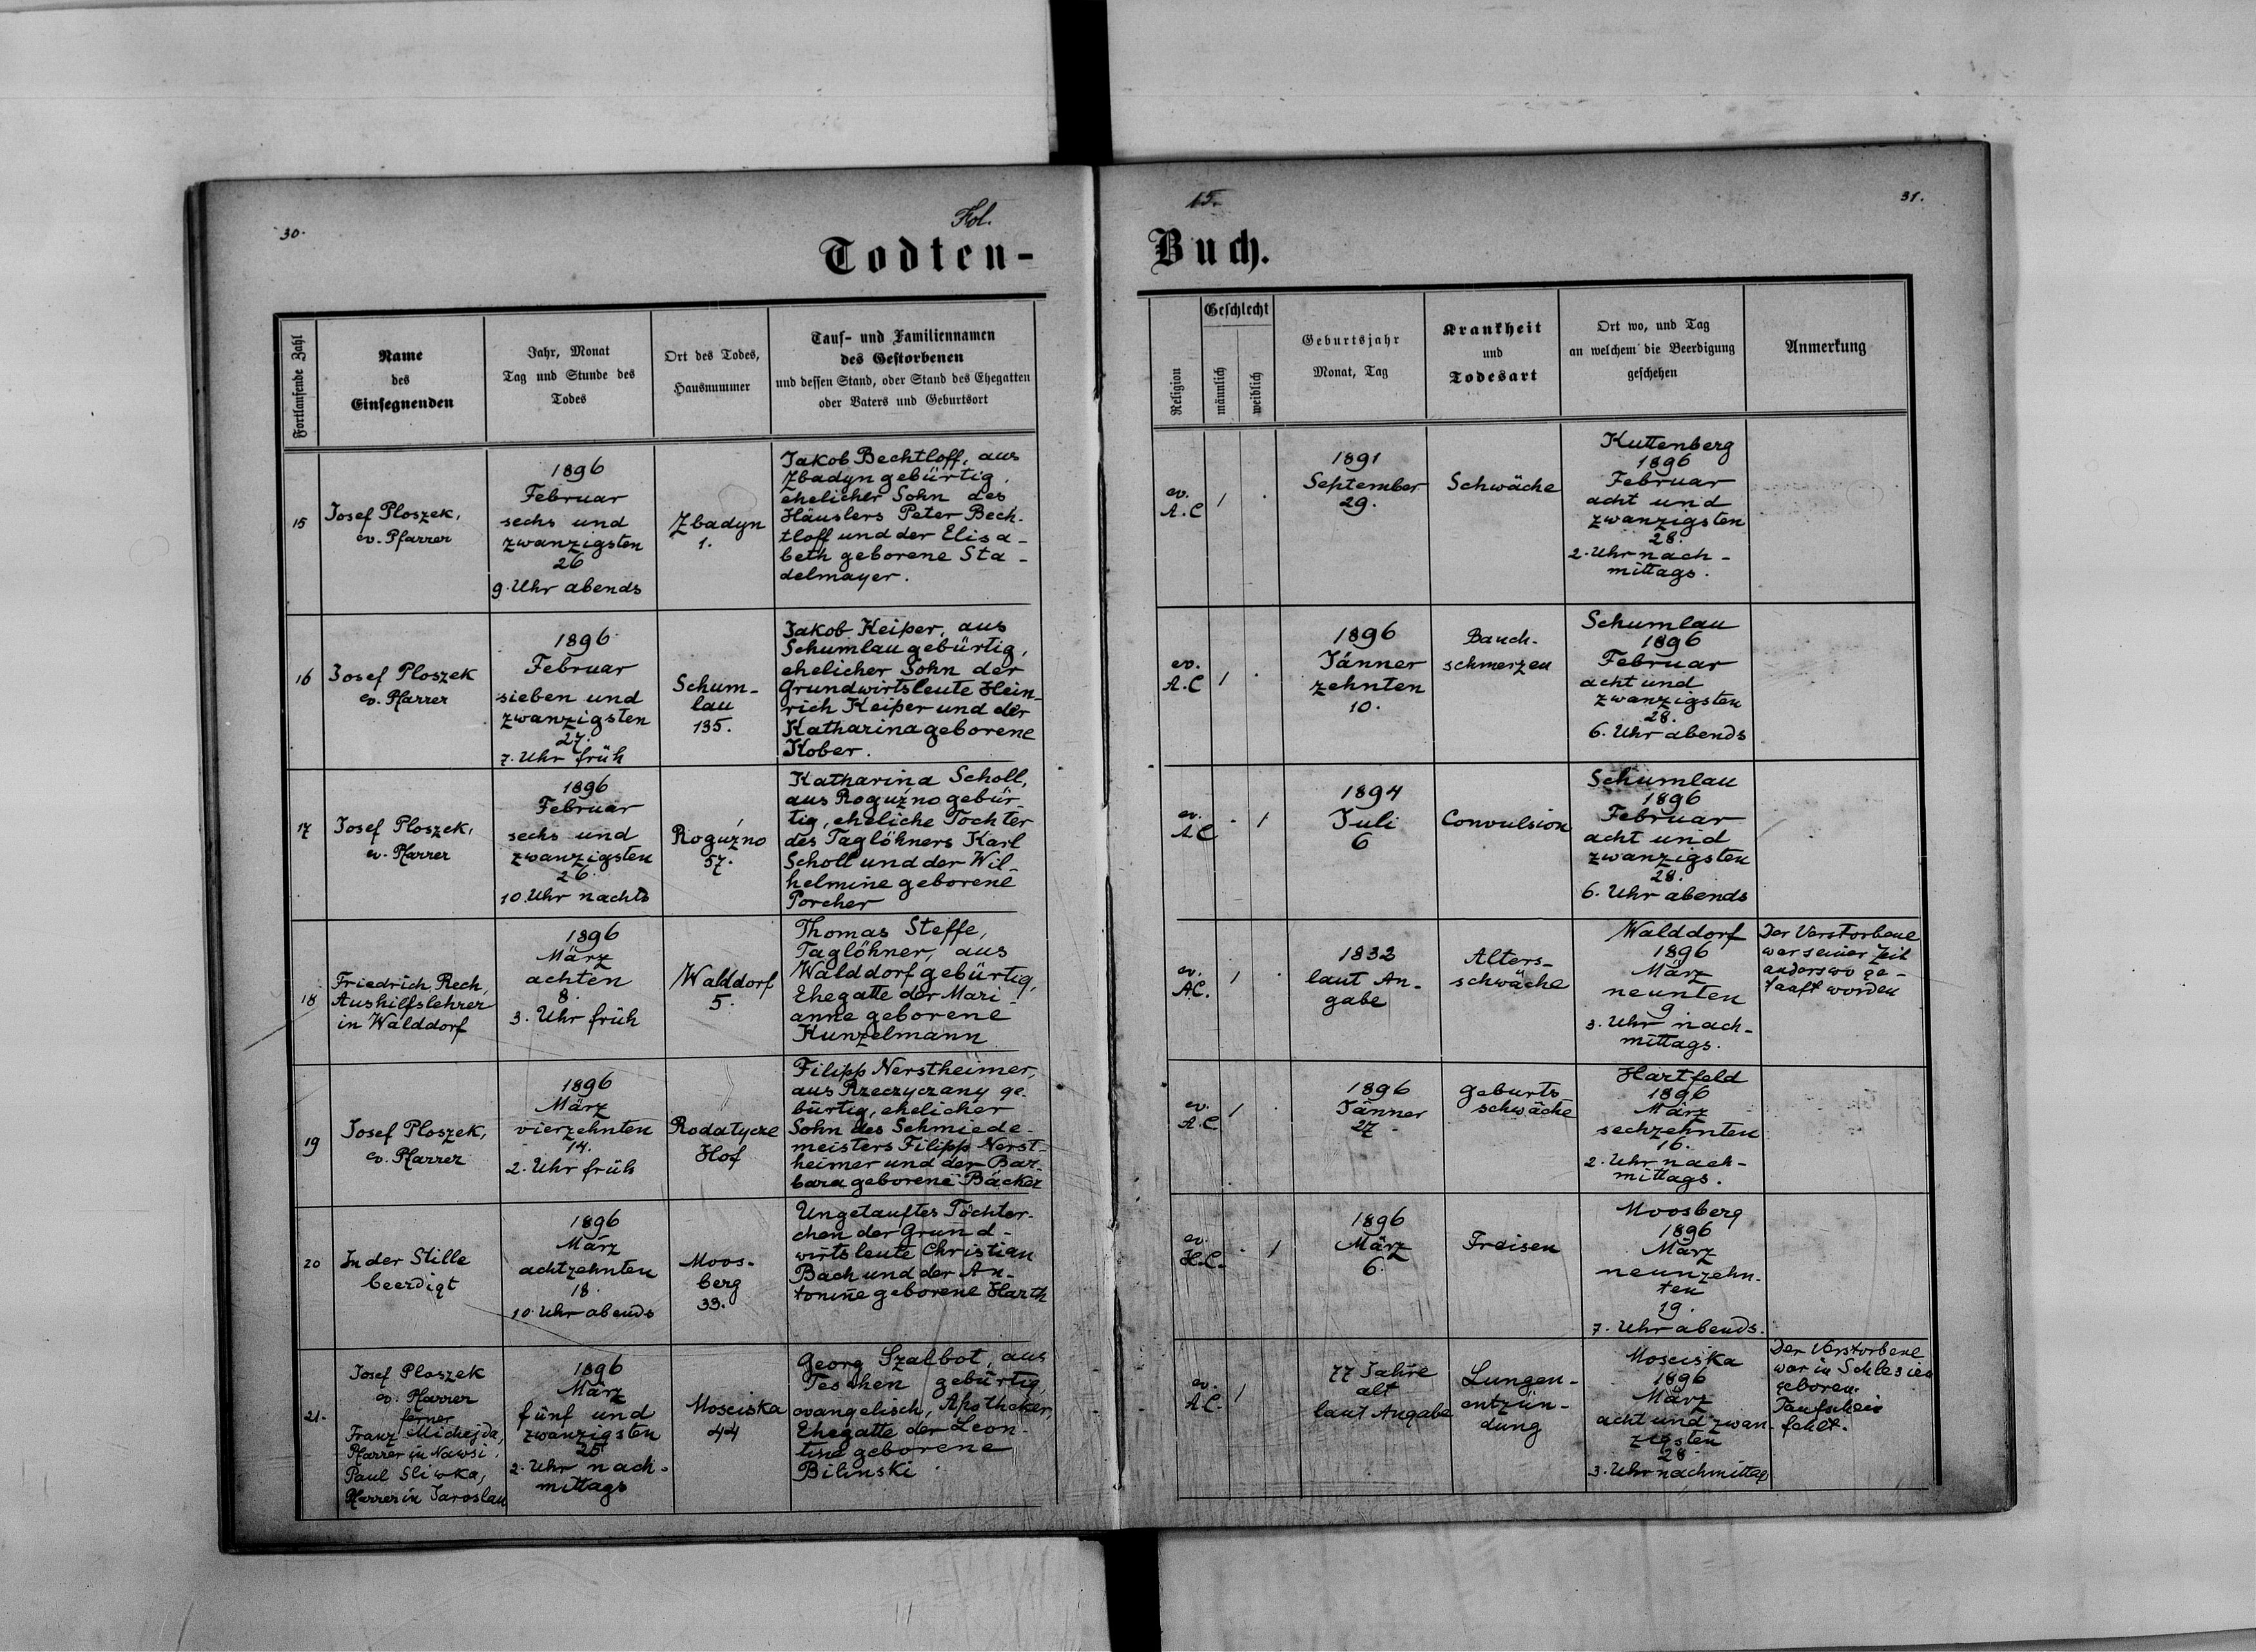 30.
Fol.
15.
31.
Todten-
Buch.
Fortlaufende Zahl
Name
des
Einsegnenden
Jahr, Monat
Tag und Stunde des
Todes
Ort des Todes,
Hausnummer
Tauf- und Familiennamen
des Gestorbenen
und dessen Stand, oder Stand des Ehegatten
oder Vaters und Geburtsort
Religion
Geschlecht
männlich
weiblich
Geburtsjahr
Monat, Tag
Krankheit
und
Todesart
Ort wo, und Tag
an welchem die Beerdigung
geschehen
Anmerkung
15
Josef Ploszek,
ev. Pfarrer
1896
Februar
sechs und
zwanzigsten
26
9. Uhr abends
Zbadyn
1.
Jakob Bechtloff, aus
Zbadyn gebürtig,
ehelicher Sohn des
Häuslers Peter Bech-
tloff und der Elisa-
beth geborene Sta-
delmayer.
ev.
A.C
1
1891
September
29.
Schwäche
Kuttenberg
1896
Februar
acht und
zwanzigsten
28.
2. Uhr nach-
mittags.
16
Josef Ploszek
ev. Pfarrer
1896
Februar
sieben und
zwanzigsten
27.
7. Uhr früh
Schum-
lau
135.
Jakob Keiper, aus
Schumlau gebürtig,
ehelicher Sohn der
Grundwirtsleute Hein-
rich Keiper und der
Katharina geborene
Kober.
ev.
A.C
1
1896
Jänner
zehnten
10.
Bauch-
schmerzen
Schumlau
1896
Februar
acht und
zwanzigsten
28.
6. Uhr abends
17
Josef Ploszek,
ev. Pfarrer
1896
Februar
sechs und
zwanzigsten
26.
10. Uhr nachts
Roguźno
57.
Katharina Scholl,
aus Roguźno gebür-
tig, eheliche Tochter
des Taglöhners Karl
Scholl und der Wil-
helmine geborene
Porcher
ev.
A.C
1
1894
Juli
6
Convulsion
Schumlau
1896
Februar
acht und
zwanzigsten
28.
6. Uhr abends
18
Friedrich Rech,
Aushilfslehrer
in Walddorf
1896
März
achten
8.
3. Uhr früh
Walddorf
5.
Thomas Steffe,
Taglöhner, aus
Walddorf gebürtig,
Ehegatte der Mari-
anne geborene
Kunzelmann
ev.
A.C.
1
1832
laut An-
gabe
Alters-
schwäche
Walddorf
1896
März
neunten
9
3. Uhr nach-
mittags.
Der Verstorbene
war seiner Zeit
anderswo ge-
tauft worden
19
Josef Ploszek,
ev. Pfarrer
1896
März
vierzehnten
14.
2. Uhr früh
Rodatycze
Hof
Filipp Nerstheimer,
aus Rzeczyczany ge-
bürtig, ehelicher
Sohn des Schmiede-
meisters Filipp Nerst-
heimer und der Bar-
bara geborene Bäcker
ev.
A.C.
1
1896
Jänner
27
Geburts
schwäche
Hartfeld
1896
März
sechzehnten
16.
2. Uhr nach-
mittags.
20
In der Stille
beerdigt
1896
März
achtzehnten
18.
10. Uhr abends
Moos-
berg
33.
Ungetauftes Töchter-
chen der Grund-
wirtsleute Christian
Bach und der An-
tonine geborene Harth
ev.
H.C.
1
1896
März
6.
Fraisen
Moosberg
1896
März
neunzehn-
ten
19.
7. Uhr abends.
21.
Josef Ploszek
ev. Pfarrer
ferner
Franz Michejda,
Pfarrer in Nawsi,
Paul Sliwka,
Pfarrer in Jaroslau
1896
März
fünf und
zwanzigsten
25
2. Uhr nach-
mittags
Mosciska
44
Georg Szalbot, aus
Teschen gebürtig,
evangelisch, Apotheker,
Ehegatte der Leon-
tine geborene
Bilinski.
ev.
A.C.
1
77 Jahre
alt
laut Angabe
Lungen-
entzün-
dung
Mosciska
1896
März
acht und zwan-
zigsten
28.
3. Uhr nachmittag
Der Verstorbene
war in Schlesien
geboren.
Taufschein
fehlt.